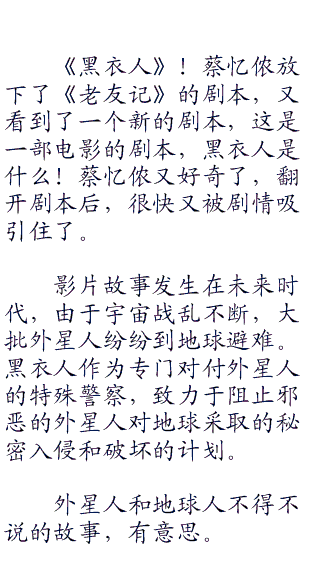 《黑衣人》！蔡忆侬放
下了《老友记》的剧本，又
看到了一个新的剧本，这是
一部电影的剧本，黑衣人是
什么！蔡忆侬又好奇了，翻
开剧本后，很快又被剧情吸
引住了。
影片故事发生在未来时
代，由于宇宙战乱不断，大
批外星人纷纷到地球避难。
黑衣人作为专门对付外星人
的特殊警察，致力于阻止邪
恶的外星人对地球采取的秘
密入侵和破坏的计划。
外星人和地球人不得不
说的故事，有意思。